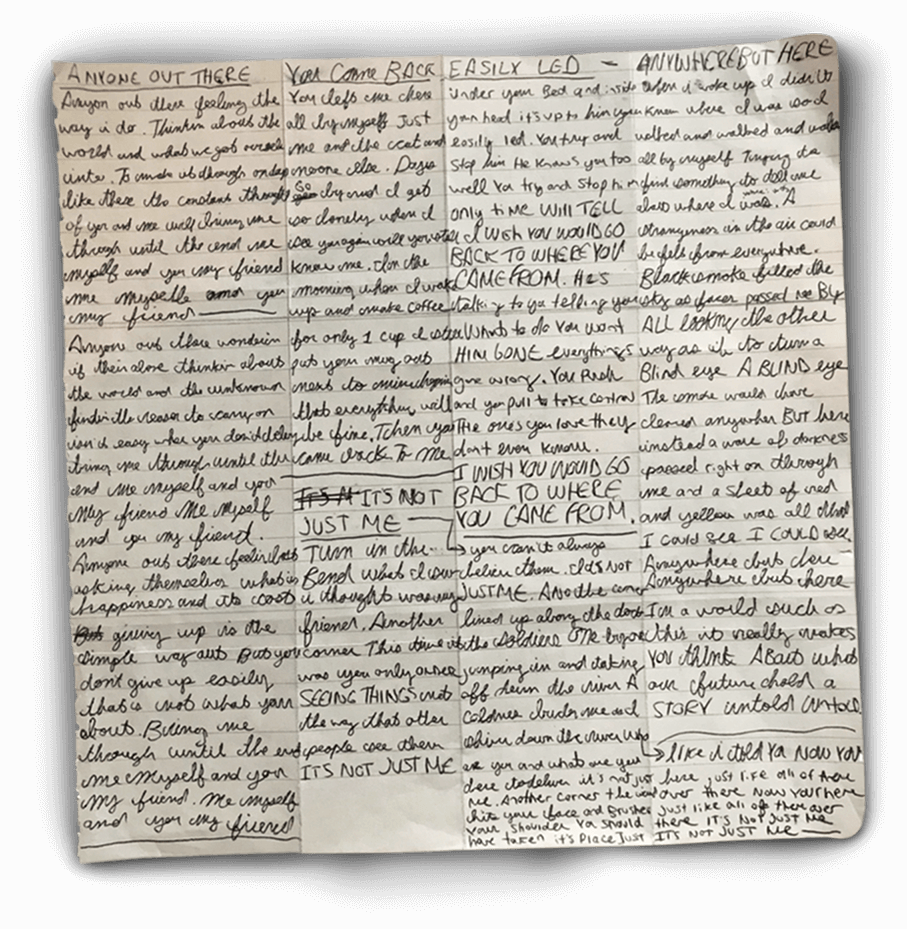 ANYONE OUT THERE
Anyon out there feeling the
way i do. Thinkin about the
world and what we got
into. To make it through
like there the constant
of you and me will bring me
through until the end me
myself and you my friend
me myself and you
my friend
Anyon out there wonderin
if their alone thinkin about
the world and the unknown
findin the reason to carry on
isn't easy when you don't
bring me through until the
end me myself and you
My friend Me myself
and you my friend.
Anyone out there feelin
asking themselves what is
happiness and its cost
But giving up is the
simple way out But you
don't give up easily
that is not what your
about. Bring me
through until the end
me myself and you
my friend. Me myself
and you my friend
YOU COME BACK
You left me here
all by myself Just
me and the cat and
no one else. Days
Go by and I get
so lonely when I
see you again will you
know me. In the
morning when I wake
up and make coffee
for only 1 cup I
put your mug out
next to mine hopin
that everythin will
be fine. Then you
come back To me
ITS N ITS NOT
JUST ME
TURN in the
Bend what I saw
i thought was my
friend. Another
corner This time it
was you only once
SEEING THINGS not
the way that other
people see them
ITS NOT JUST ME
EASILY LED -
under your Bed and inside
your head it's up to him your
easily led. You try and
Stop him He knows you too
well You try and stop him
only time WILL TELL
I WISH YOU WOULD GO
BACK TO WHERE YOU
CAME FROM. HES
talking to ya telling you
Wants to do You want
HIM GONE everythings
gone wrong. You Push
and you pull to take control
The ones you love they
don't even know.
I WISH YOU WOULD GO
BACK TO WHERE
YOU CAME FROM.
you can't always
believe them. It's NOT
JUST ME. Another
lined up along the dock
the soldiers one by one
jumping in and taking
off down the river A
coldness under me and
shiver down the
are you and what are you
here to deliver it's not just
me. Another corner the wind
hits your face and brushes
your shoulder Ya should
have taken it's Place Just
ANYWHERE BUT HERE
when I woke up I didn't
know where I was and
walked and walked and
all by myself Trying to
find something to tell me
about where I was. A
strangeness in the air could
be felt from everywhere.
Black smoke filled the
sky as faces passed me By
ALL looking the other
way as if to turn a
Blind eye A BLIND eye
The smoke would have
cleared anywher BUT here
instead a wave of darkness
passed right on through
me and a sheet of red
and yellow was all that
I could see I COULD see
Anywhere but here
Anywhere but here
In a world such as
this it really makes
You think About what
our future hold a
STORY untold UNTOLD
like i told Ya NOW YOU
here just like all of those
over there Now your here
just like all of there over
there ITS NOT JUST ME
ITS NOT JUST ME